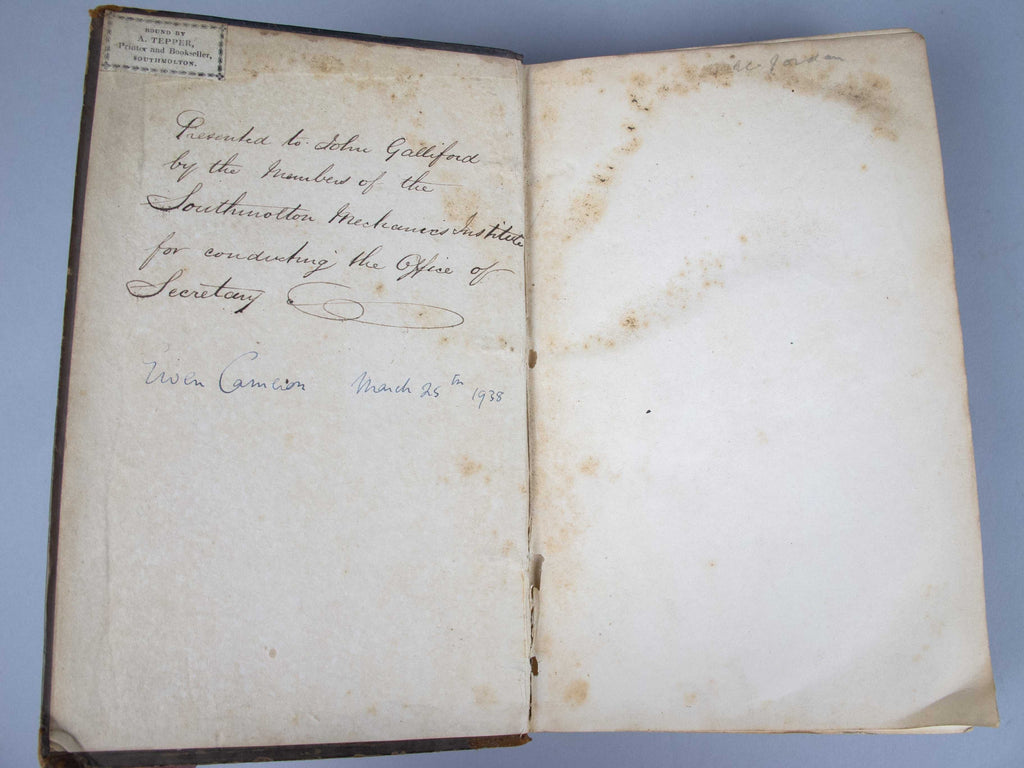 BOUND BY
A. TEPPER,
Printer and Bookseller,
SOUTHMOLTON.
Presented to John Galliford
by the Members of the
Southmolton Mechanics Institute
for conducting the Office of
Secretary
Cameron March 25th 1938
Jordan